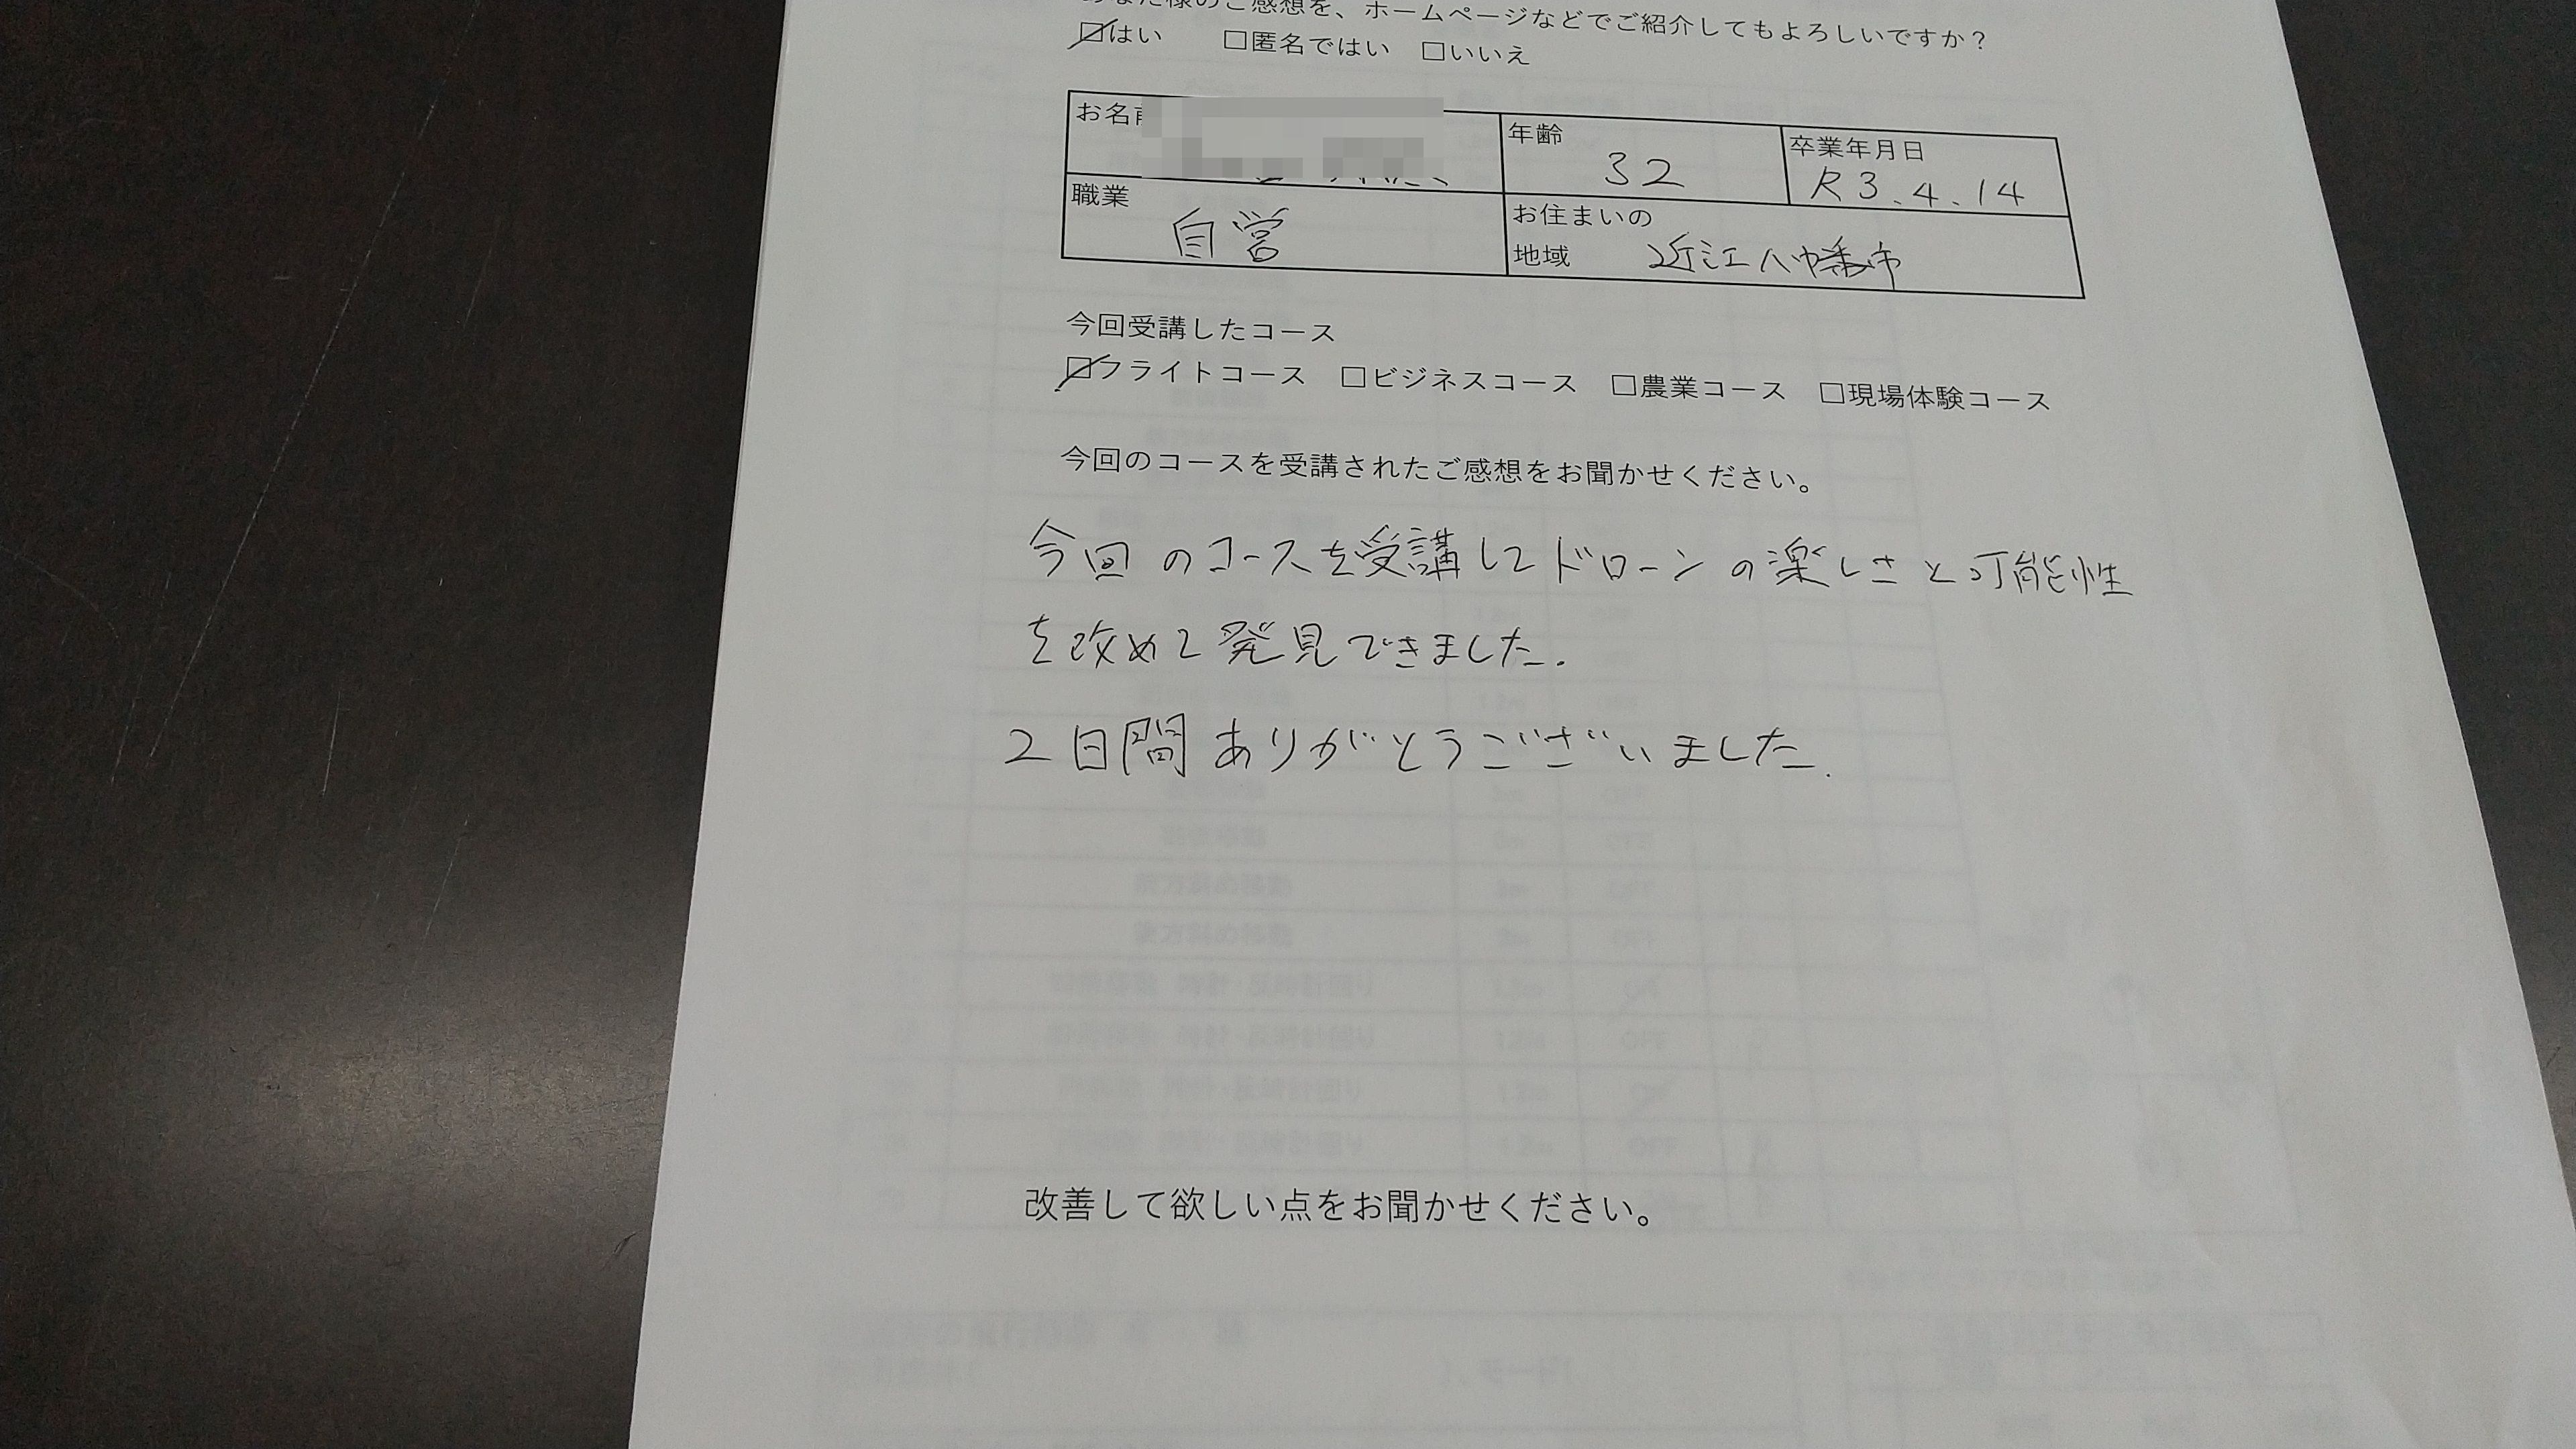 あなた様のご感想を、ホームページなどでご紹介してもよろしいですか？
☑はい □匿名ではい □いいえ
お名前
年齢 32
卒業年月日 R3.4.14
職業 自営
お住まいの
地域 近江八幡市
今回受講したコース
☑フライトコース □ビジネスコース □農業コース □現場体験コース
今回のコースを受講されたご感想をお聞かせください。
今回のコースを受講してドローンの楽しさと可能性
を改めて発見できました.
2日間ありがとうございました.
改善して欲しい点をお聞かせください。